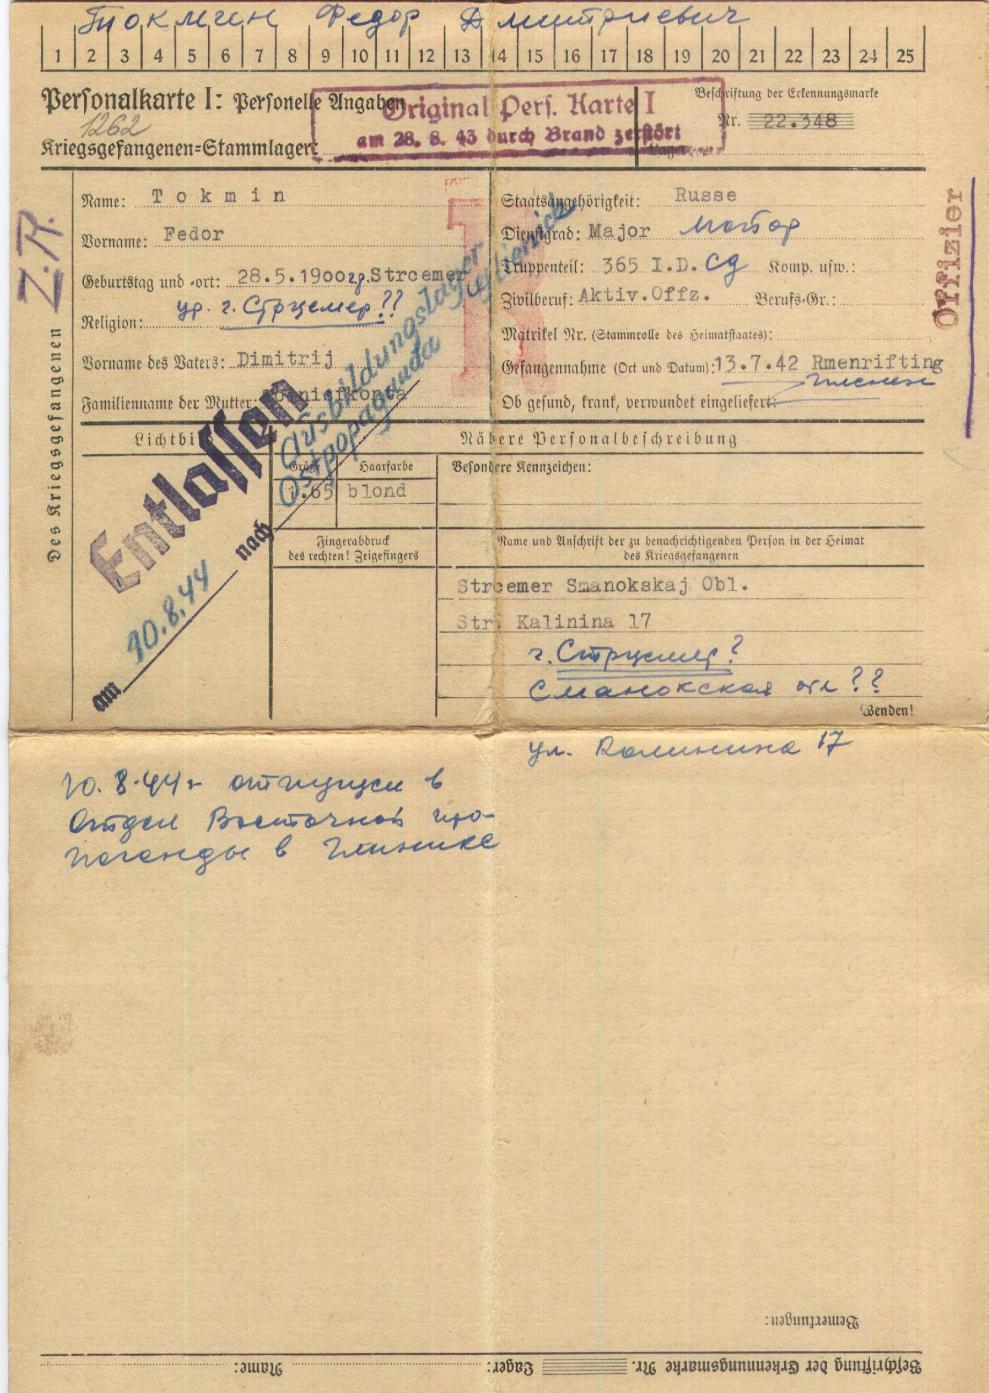 Токмин Федор Дмитриевич
1 2 3 4 5 6 7 8 9 10 11 12 13 14 15 16 17 18 19 20 21 22 23 24 25
Personalkarte I: Personelle Angaben
Original Pers. Karte I
am 28. 8. 43 durch Brand zerstört
Beschriftung der Erkennungsmarke
Nr. 22.348
1262
Kriegsgefangenen-Stammlager:
Lager:
Des Kriegsgefangenen
Z.R.
Offizier
Name: Tokmin
Vorname: Fedor
Geburtstag und -ort: 28.5.1900 Stroemer
ур. г. Струемер??
Religion:
Vorname des Vaters: Dimitrij
Familienname der Mutter:
Staatsangehörigkeit: Russe
Dienstgrad: Major майор
Truppenteil: 365 I.D. сд Komp. usw.:
Zivilberuf: Aktiv.Offz. Berufs-Gr.:
Matrikel Nr. (Stammrolle des Heimatstaates):
Gefangennahme (Ort und Datum): 13.7.42 Rmenrifting
Ob gesund, krank, verwundet eingeliefert:
R
Entlassen
am 10.8.44 nach Ausbildungslager
Ostpropaganda
Lichtbild
Nähere Personalbeschreibung
Größe Haarfarbe Besondere Kennzeichen:
1.65 blond
Fingerabdruck
des rechten! Zeigefingers
Name und Anschrift der zu benachrichtigenden Person in der Heimat
des Kriegsgefangenen
Stroemer Smanokskaj Obl.
Str. Kalinina 17
г. Струемер?
Сманокская обл ??
Wenden!
ул. Калинина 17
10.8.44г отпущен в
Отдел Восточной про-
паганды в Глинике
Bemerkungen:
Beschriftung der Erkennungsmarke Nr. Lager: Name: